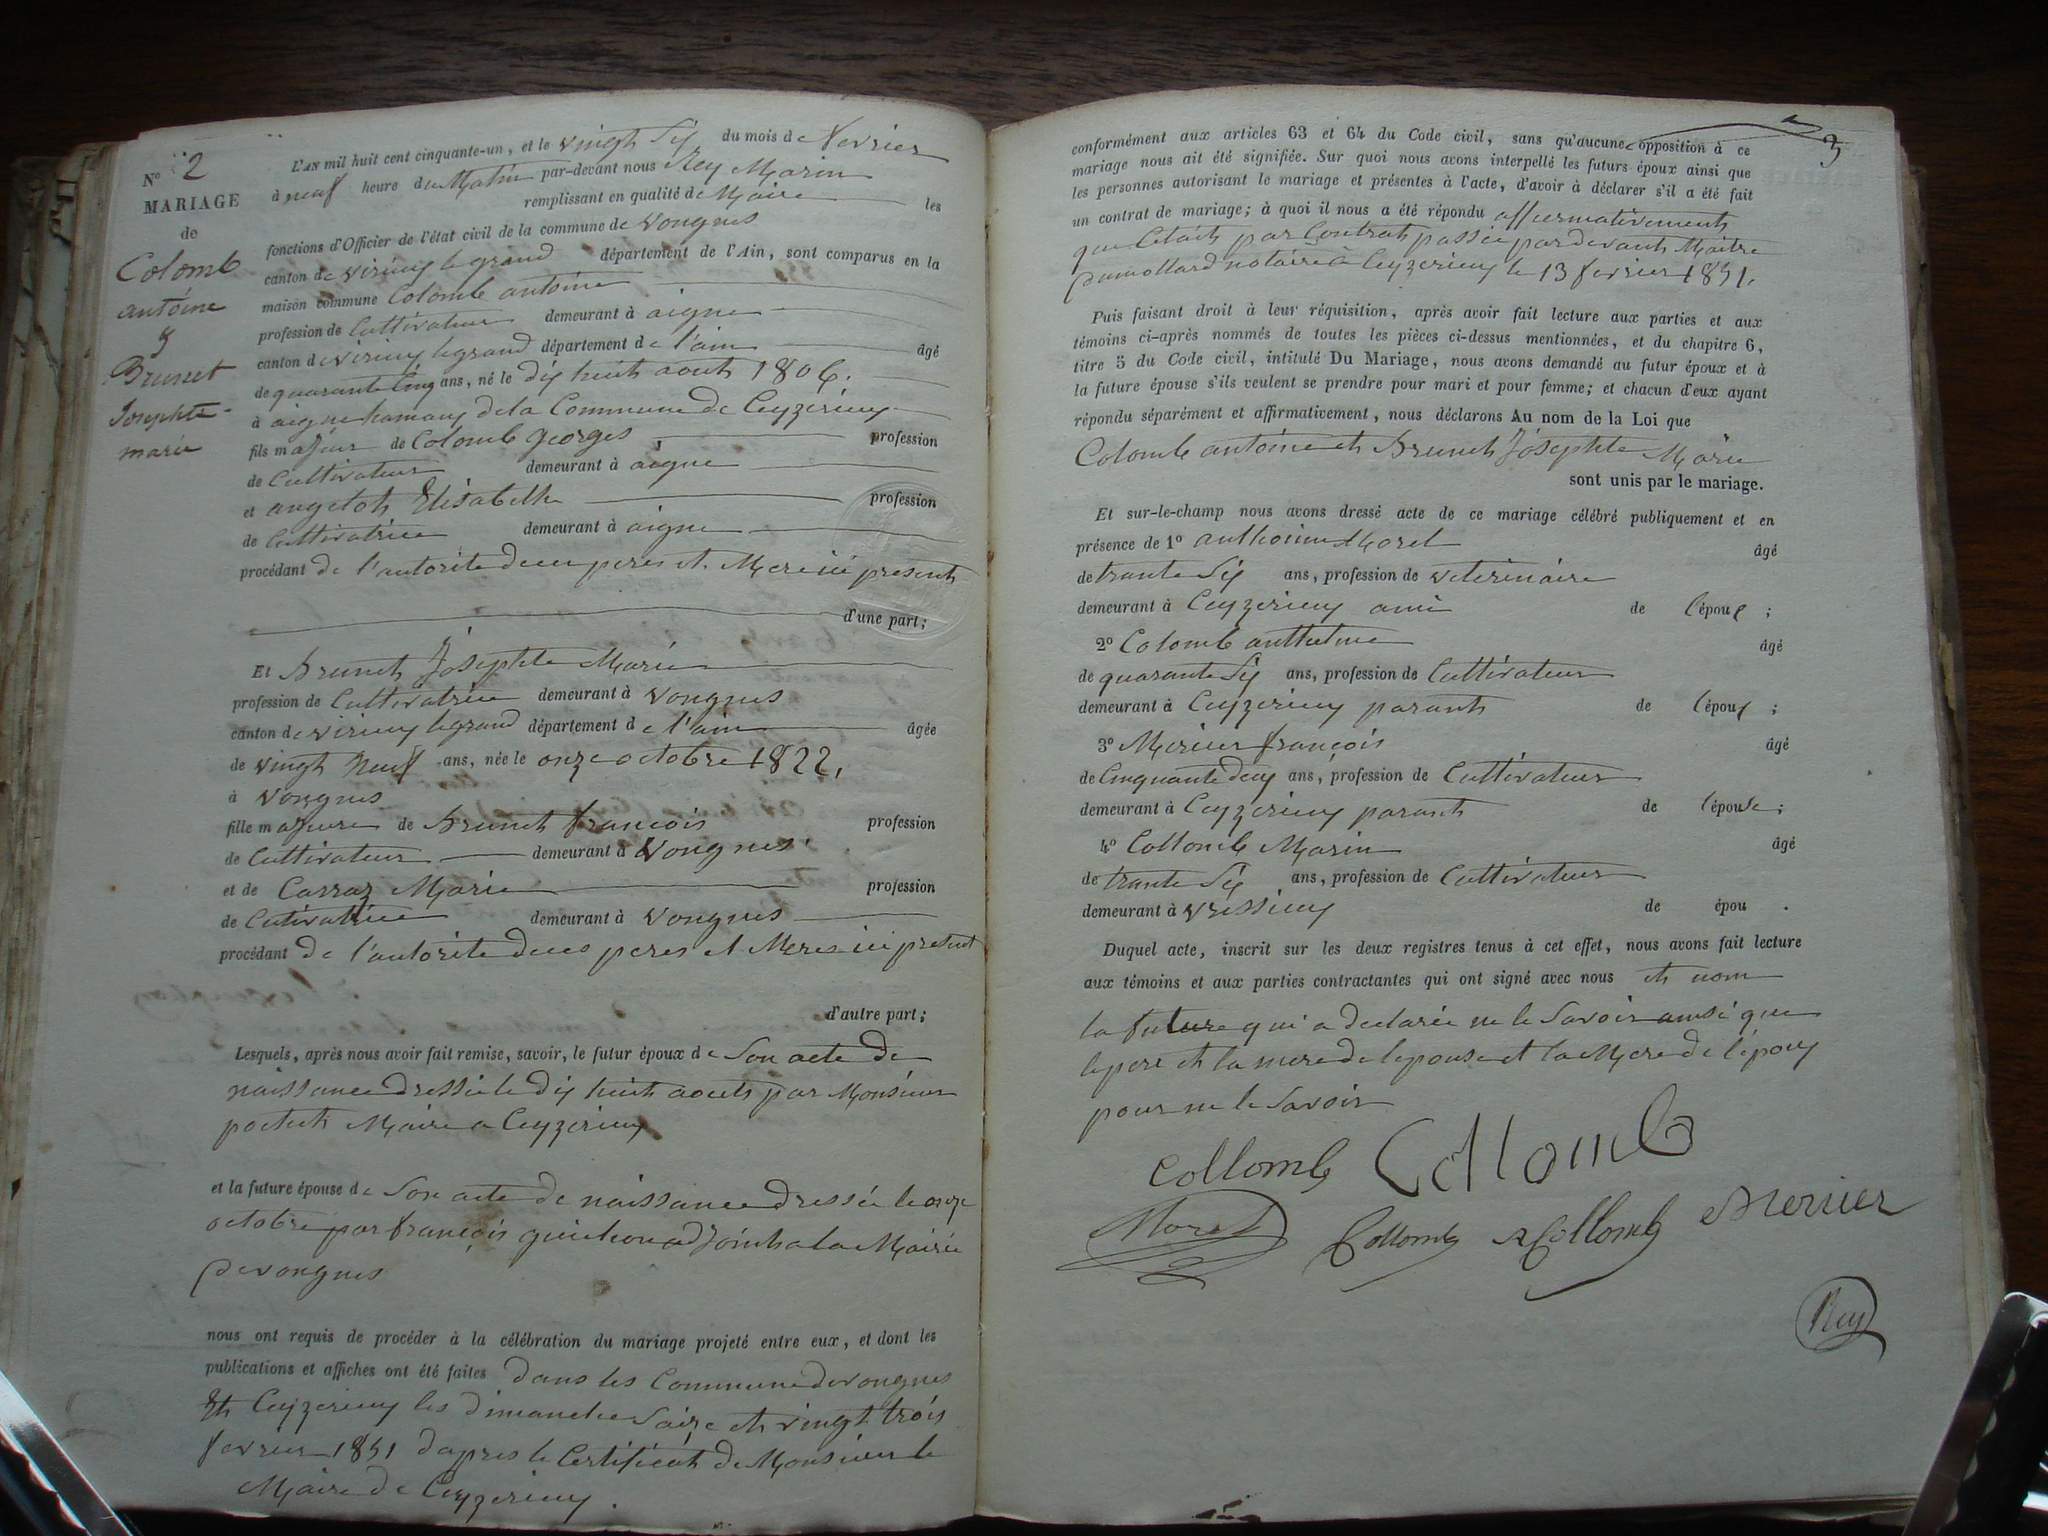 N° 2
MARIAGE
de
Colomb
antoine
&
Brunet
Josephte
marie
L'AN mil huit cent cinquante-un, et le vingt Six du mois de Fevrier
à neuf heure du Matin par-devant nous Rey Marin
remplissant en qualité de Maire les
fonctions d'Officier de l'état civil de la commune de Vongnes
canton de virieu le grand département de l'Ain, sont comparus en la
maison commune Colomb antoine
profession de Cultivateur demeurant à aigne
canton de virieu le grand département de l'ain âgé
de quarante Cinq ans, né le dix huit aout 1806.
à aigne hamau de la Commune de Ceyzerieu
fils majeur de Colomb georges profession
de Cultivateur demeurant à aigne
et angelot Elisabeth profession
de Cultivatrice demeurant à aigne
procédant de l'autorite de ces peres et Mere ici present
d'une part;
Et Brunet Josephte Marie
profession de Cultivatrice demeurant à Vongnes
canton de virieu le grand département de l'ain âgée
de vingt Neuf ans, née le onze octobre 1822,
à Vongnes
fille majeure de Brunet francois profession
de Cultivateur demeurant à Vongnes
et de Carraz Marie profession
de Cutivatrice demeurant à Vongnes
procédant de l'autorite de ces peres et Meres ici present
d'autre part;
Lesquels, après nous avoir fait remise, savoir, le futur époux de Son acte de
naissance dressé le dix huit aouts par Monsieur
Maire a Ceyzerieu
et la future épouse de Son acte de naissance dressée le onze
octobre par françois adjoint a la Mairie
de vongnes
nous ont requis de procéder à la célébration du mariage projeté entre eux, et dont les
publications et affiches ont été faites dans les Commune de vongnes
Et Ceyzerieu les dimanche Saize et vingt trois
fevrier 1851 dapres le Certificat de Monsieur le
Maire de Ceyzerieu.
3
conformément aux articles 63 et 64 du Code civil, sans qu'aucune opposition à ce
mariage nous ait été signifiée. Sur quoi nous avons interpellé les futurs époux ainsi que
les personnes autorisant le mariage et présentes à l'acte, d'avoir à déclarer s'il a été fait
un contrat de mariage; à quoi il nous a été répondu affiermativement
que Cetait par Contrat passée par devant Maitre
Dumollard notaire à Ceyzerieu le 13 fevrier 1851.
Puis faisant droit à leur réquisition, après avoir fait lecture aux parties et aux
témoins ci-après nommés de toutes les pièces ci-dessus mentionnées, et du chapitre 6,
titre 5 du Code civil, intitulé Du Mariage, nous avons demandé au futur époux et à
la future épouse s'ils veulent se prendre pour mari et pour femme; et chacun d'eux ayant
répondu séparément et affirmativement, nous déclarons Au nom de la Loi que
Colomb antoine et Brunet Josephte Marie
sont unis par le mariage.
Et sur-le-champ nous avons dressé acte de ce mariage célébré publiquement et en
présence de 1° anthoime Moret âgé
de trante Six ans, profession de veterinaire
demeurant à Ceyzerieu ami de l'époux;
2° Colomb anthelme âgé
de quarante Six ans, profession de Cultivateur
demeurant à Ceyzerieu parant de l'époux;
3° Merier françois âgé
de Cinquante deux ans, profession de Cultivateur
demeurant à Ceyzerieu parant de l'épouse;
4° Collomb Marin âgé
de trante Six ans, profession de Cultivateur
demeurant à Vrissieu de épou .
Duquel acte, inscrit sur les deux registres tenus à cet effet, nous avons fait lecture
aux témoins et aux parties contractantes qui ont signé avec nous et nom
la future qui a declarée ne le Savoir ainsi que
le pere et la mere de lepouse et la Mere de l'époux
pour ne le Savoir
Collomb Collomb
Moret Collomb Collomb Merier
Rey